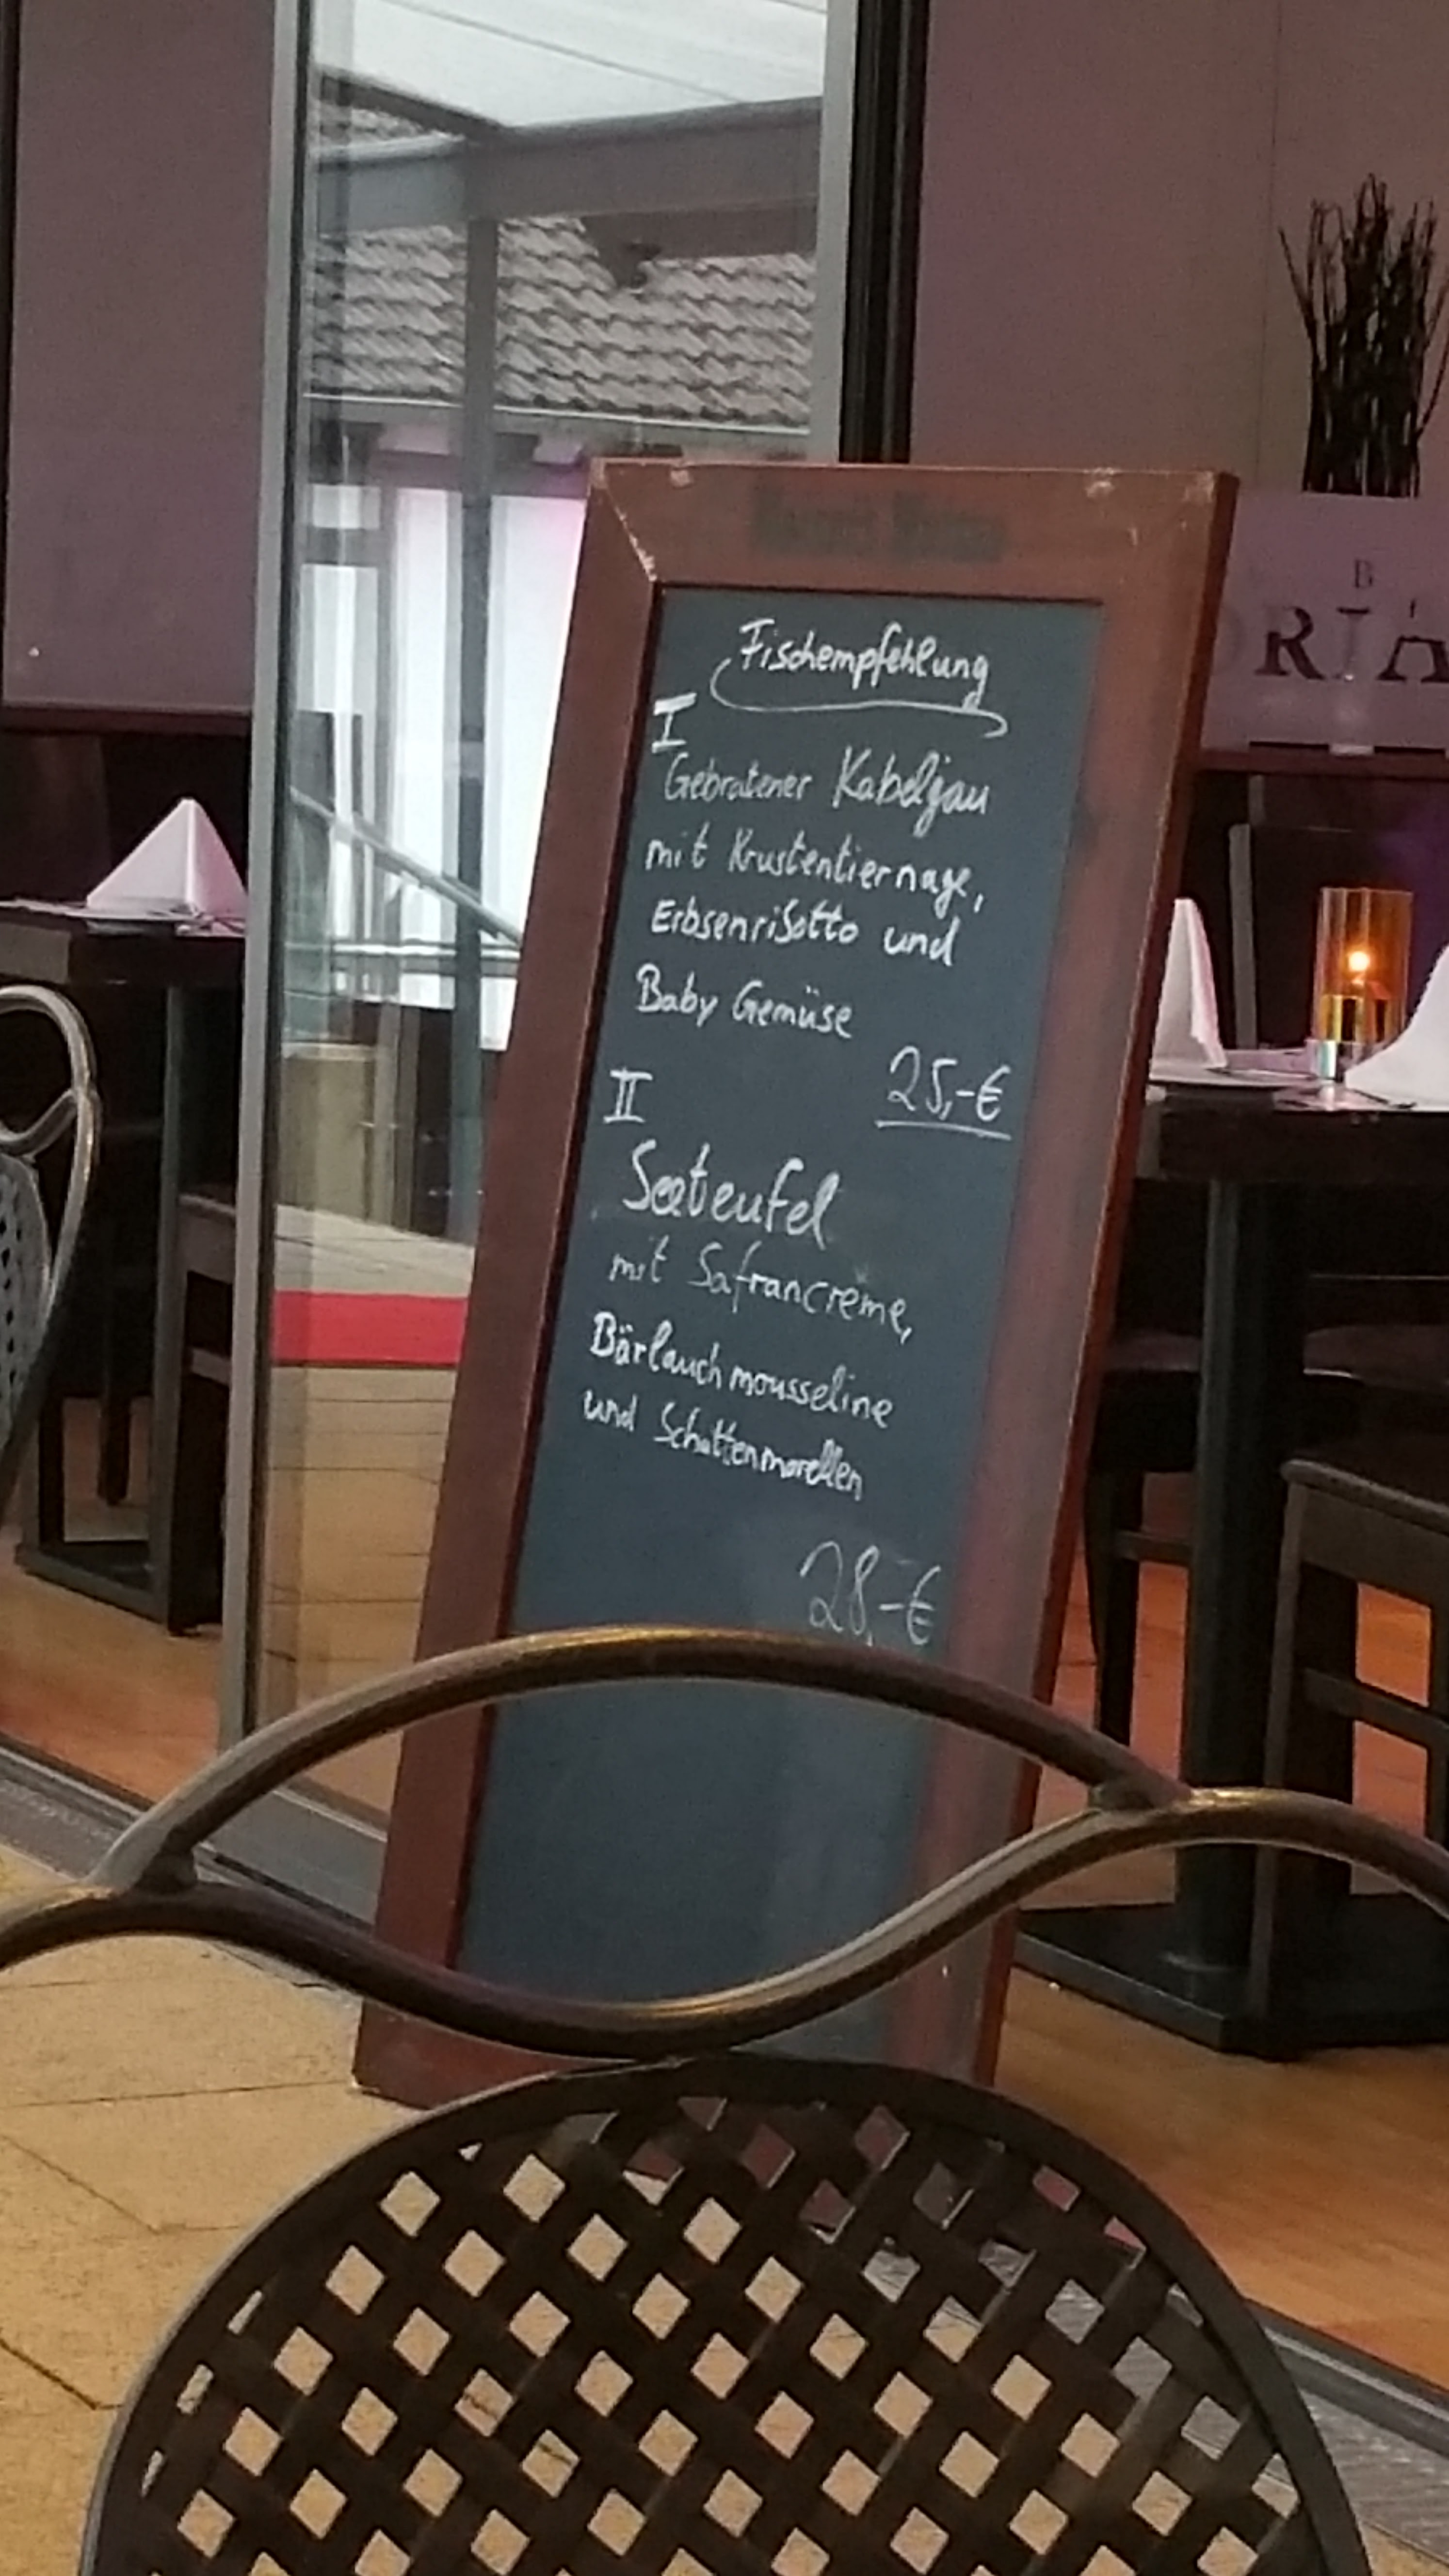 Fischempfehlung
I
Gebratener Kabeljau
mit Krustentiernage,
Erbsenrisotto und
Baby Gemüse
25,-€
II
Seeteufel
mit Safrancrème,
Bärlauchmousseline
und Schattenmorellen
28,-€
B